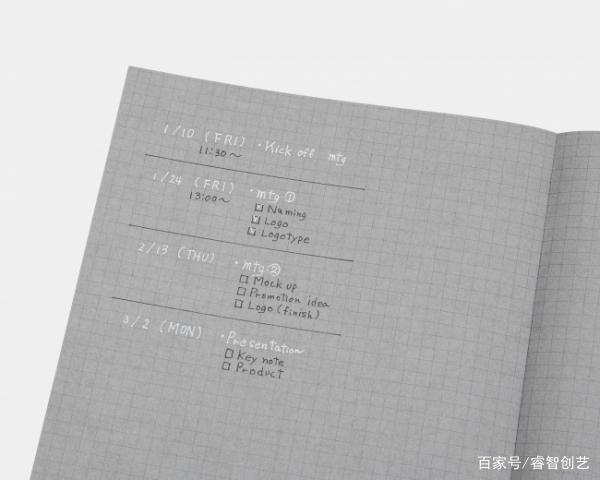 1/10 (FRI) ・Kick off mtg
11:30〜
1/24 (FRI) ・mtg ①
13:00〜
☑ Naming
☑ Logo
☑ Logotype
2/13 (THU) ・mtg ②
☐ Mock up
☐ Promotion idea
☐ Logo (finish)
3/2 (MON) ・Presentation
☐ Key note
☐ Product
百家号/睿智创艺